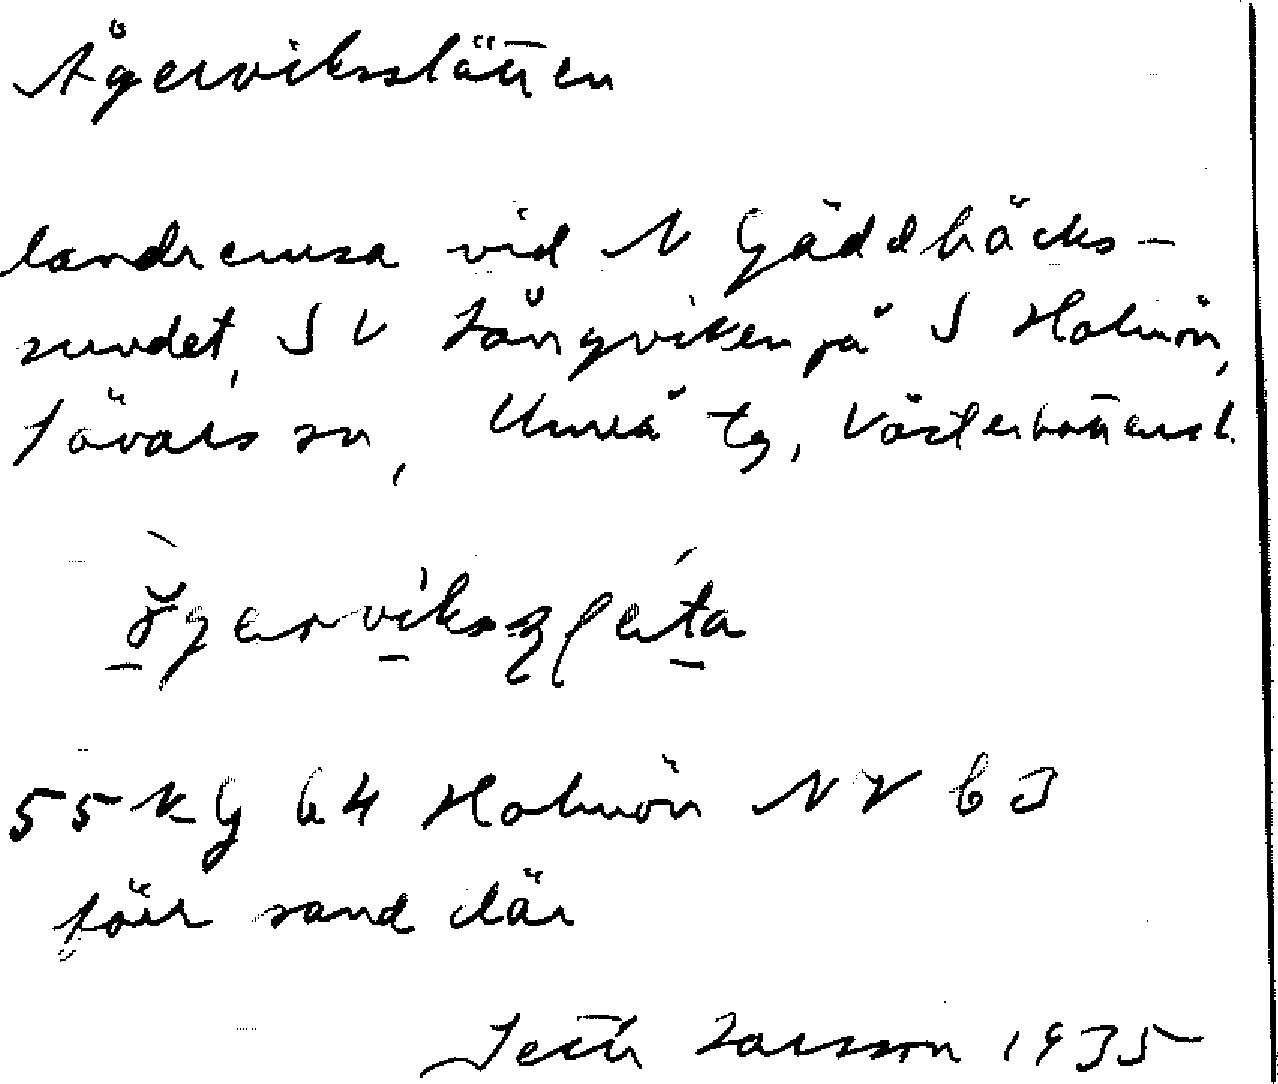 Ågerviksslätten
landremsa vid N Gäddbäcks-
sundet, SV Långviken på S Holmön,
Sävars sn, Umeå tg, Västerbottens l.
55 KG 64 Holmön NV 63
sand där
Larsson 1935